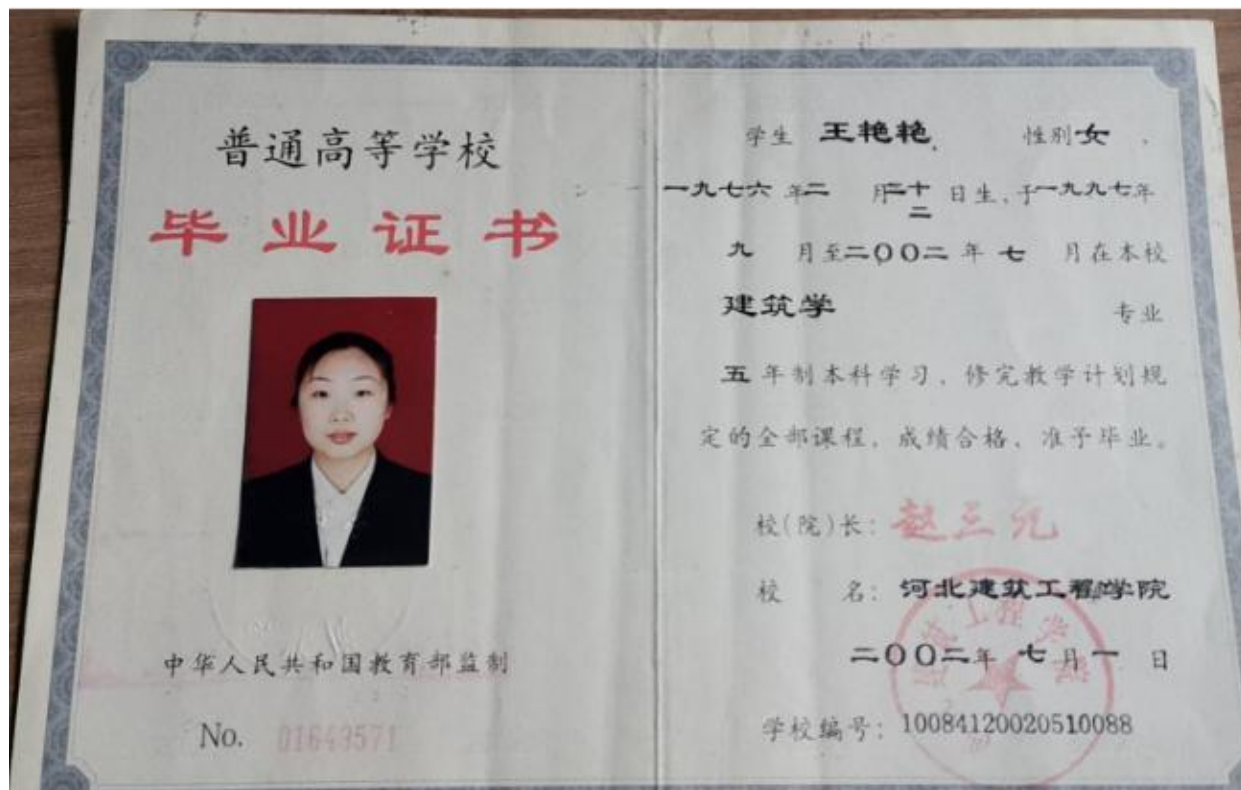 普通高等学校
毕业证书
中华人民共和国教育部监制
No. 01643571
学生 王艳艳, 性别女,
一九七六年二 月二十二日生,于一九九七年
九 月至二〇〇二年 七 月在本校
建筑学 专业
五年制本科学习,修完教学计划规
定的全部课程,成绩合格、准予毕业。
校(院)长: 赵三元
校 名: 河北建筑工程学院
二〇〇二年 七月一 日
学校编号: 10084120020510088